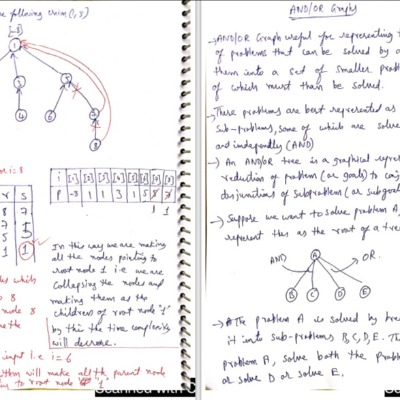 e following Union (1,5)
[-8]
1
4
6
8
i = 8
r s
8 7
7 5
5
1 1
i [1] [2] [3] [4] [5] [6]
P -8 1 1 3 1 5
1 1
In this way we are making
all the nodes pointing to
root node 1 i.e we are
Collapsing the nodes and
making them as the
children of root node "1"
by this the time complexity
will decrease.
which
8
node 8
the
input i.e i=6
thm will make all the parent node
ing to root node "1"
AND/OR Graphs
→ AND/OR Graph useful for representing t
of problems that can be solved by d
them into a set of smaller probl
of which must than be solved.
→ These problems are best represented as
Sub-problems, some of which are solve
and independently (AND)
→ An AND/OR tree is a graphical repre
reduction of problem (or goals) to conj
disjunctions of subproblem (or subgoal
→ Suppose we want to solve problem A,
represent this as the root of a tre
AND A OR
B C D E
→ The problem A is solved by brea
it into sub-problems B, C, D, E. Th
problem A, solve both the proble
or solve D or solve E.